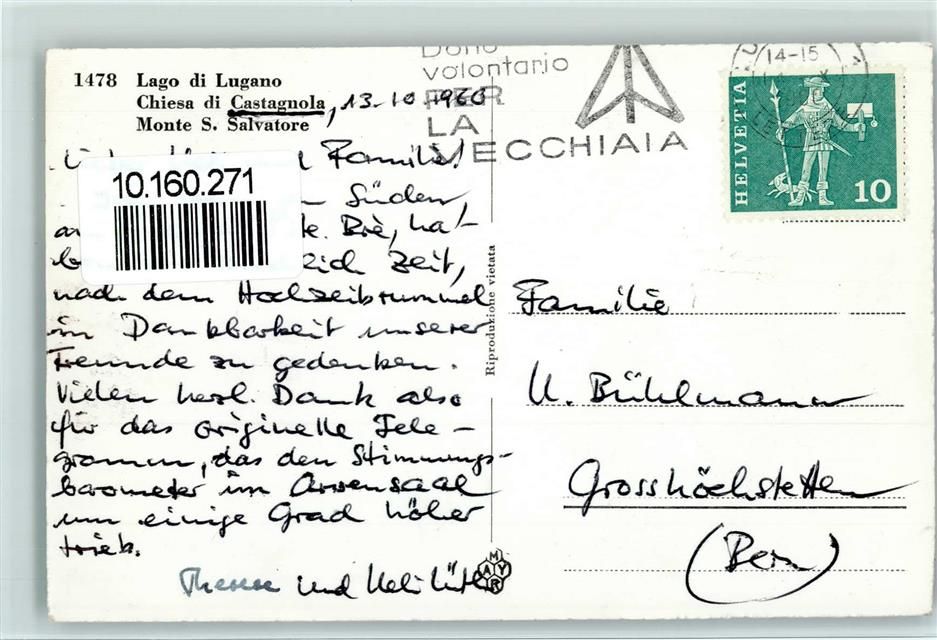 1478 Lago di Lugano
Chiesa di Castagnola, 13-10-1960
Monte S. Salvatore
Familie!
10.160.271
Süden,
Brè, ha-
Zeit,
nach dem Hochzeitsrummel
in Dankbarkeit unserer
Freunde zu gedenken.
Vielen herzl. Dank also
für das originelle Tele-
gramm, das den Stimmungs-
barometer im
um einige Grad höher
trieb.
Therese und Ueli
Riproduzione vietata
MAYR
Dono
volontario
PER
LA
VECCHIAIA
14-15
HELVETIA
10
Familie
U. Bühlmann
Grosshöchstetten
(Bern)